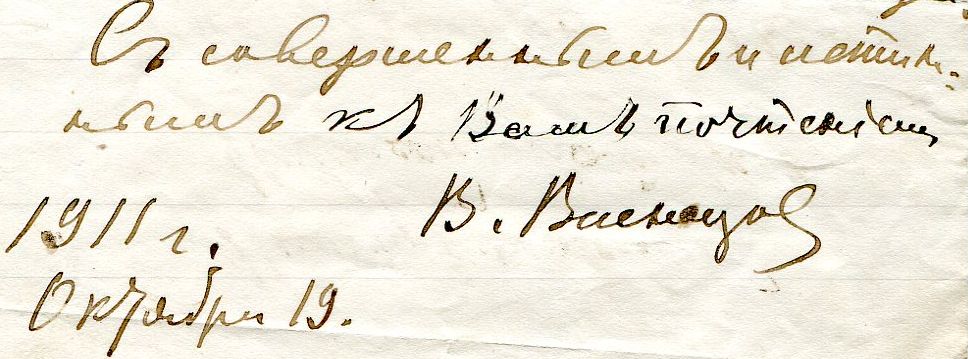 Съ совершеннымъ и истин-
нымъ къ Вамъ почтеніем
В. Васнецов
1911 г.
Октября 19.